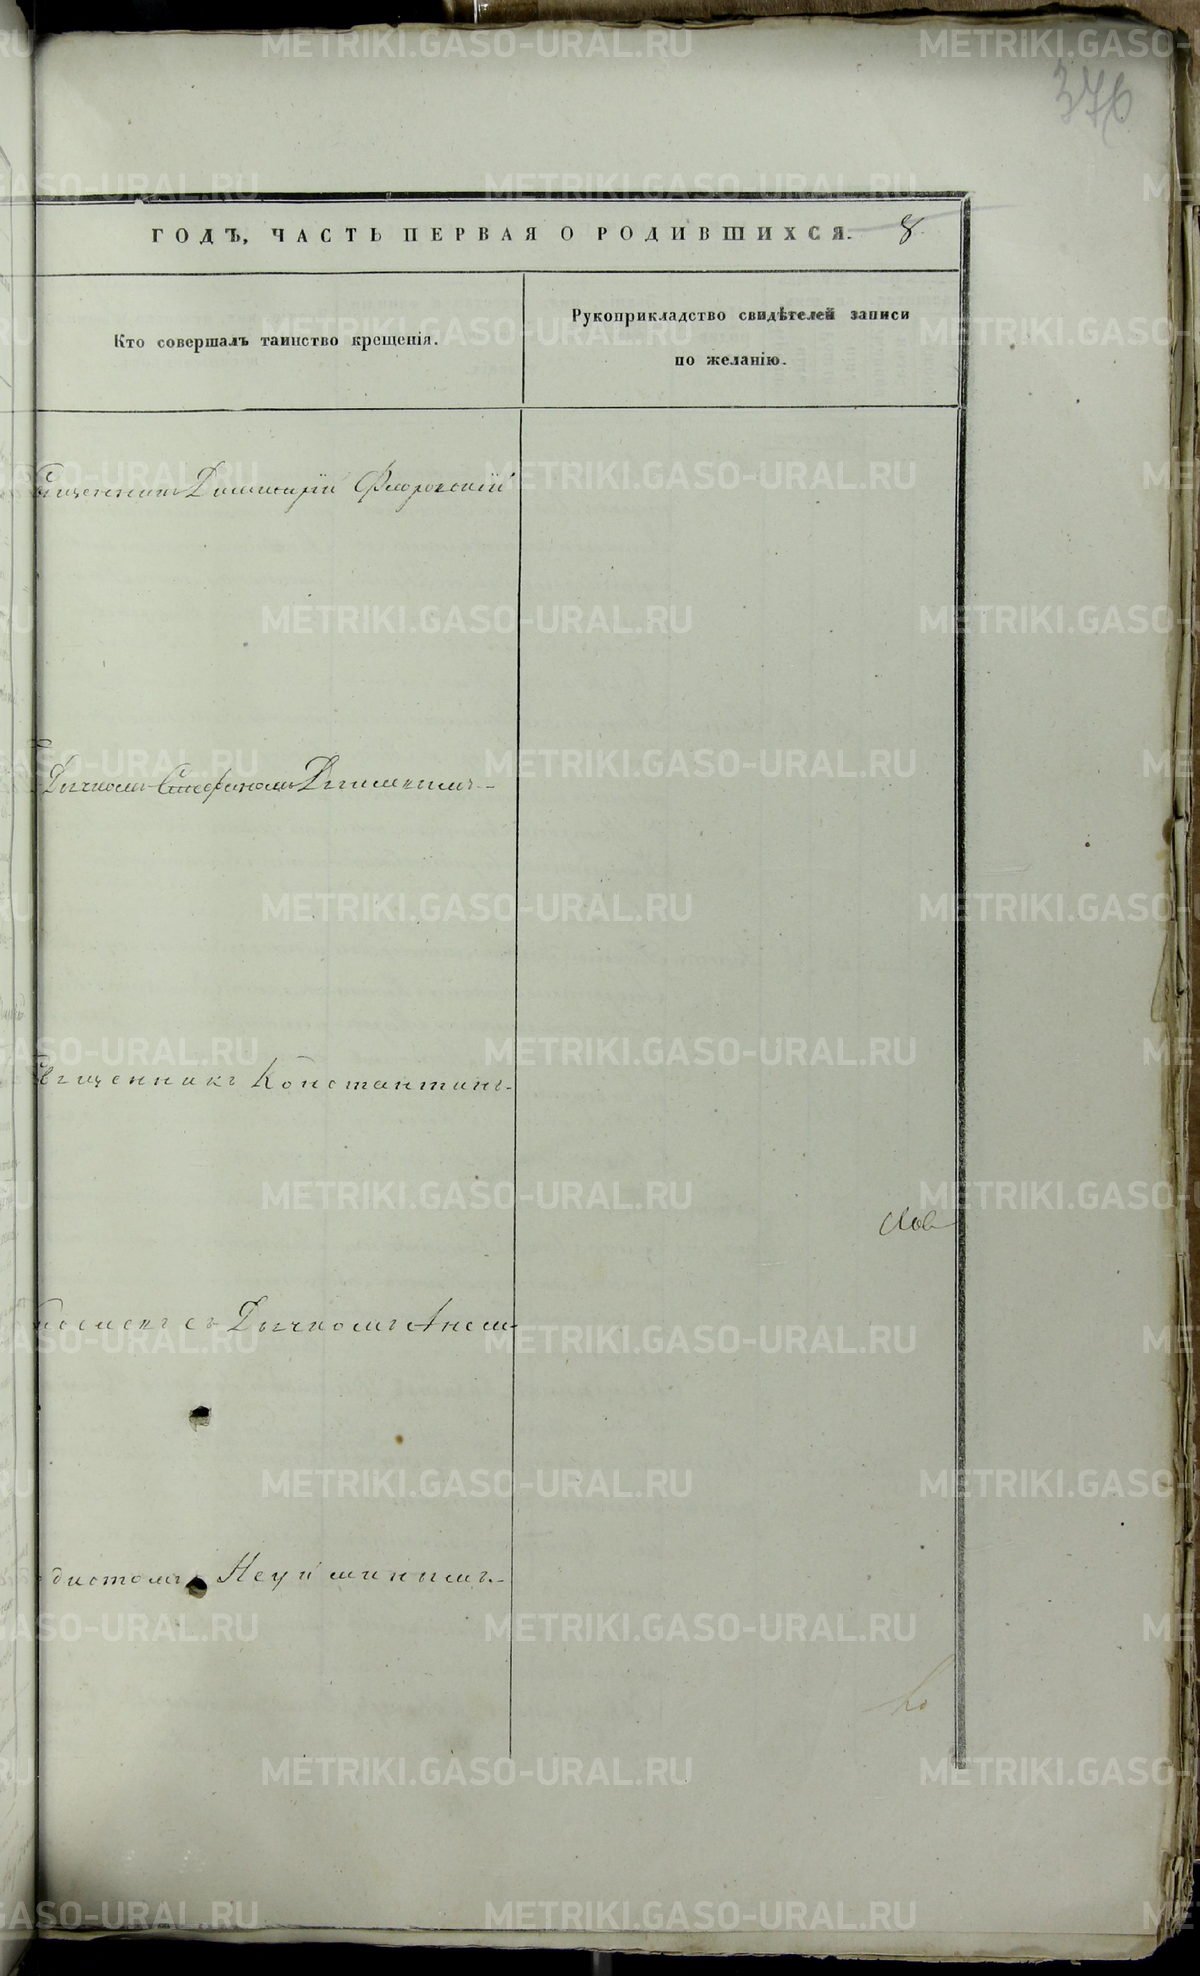 376
ГОДЪ, ЧАСТЬ ПЕРВАЯ О РОДИВШИХСЯ. 8
Кто совершалъ таинство крещенія.
Рукоприкладство свидѣтелей записи
по желанію.
Священникъ Димитрій Флоровскій
Дьячкомъ Стефаномъ
Священникъ Константинъ
съ Дьячкомъ
Неуйминымъ.
METRIKI.GASO-URAL.RU